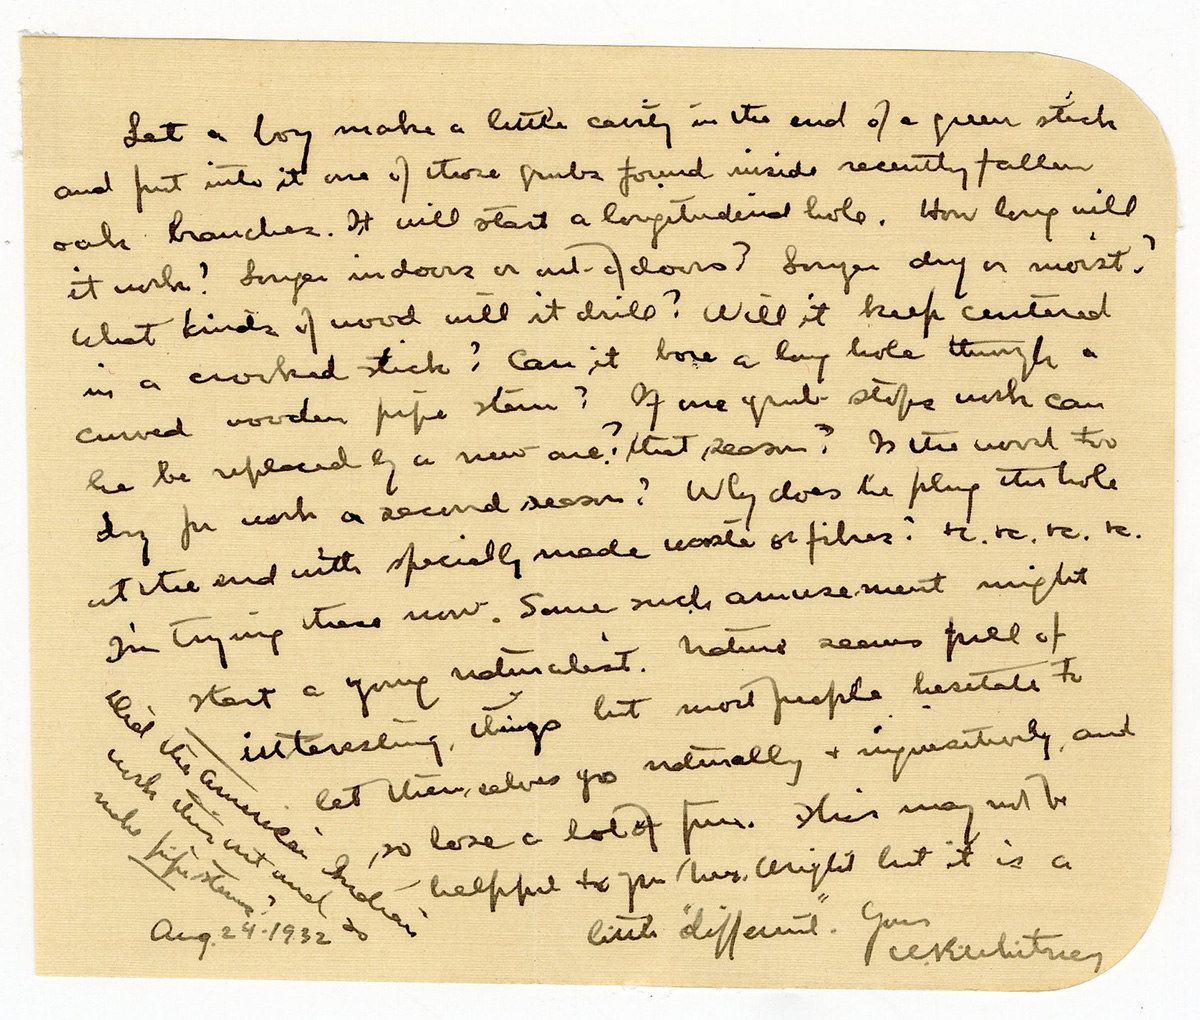 Let a boy make a little cavity in the end of a green stick
and put into it one of those grubs found inside recently fallen
oak branches. It will start a longitudinal hole. How long will
it work? Longer indoors or out-of doors? Longer dry or moist?
What kinds of wood will it drill? Will it keep centered
in a crooked stick? Can it bore a long hole through a
curved wooden pipe stem? If one grub stops work can
he be replaced by a new one? that season? Is the wood too
dry for work a second season? Why does he plug the hole
at the end with specially made waste or fibres? &c. &c. &c. &c.
I'm trying these now. Some such amusement might
start a young naturalist. Nature seems full of
interesting things but most people hesitate to
let themselves go naturally & inquisitively, and
so lose a lot of fun. This may not be
helpful to you Mrs. Wright but it is a
little "different". Yours
W.R. Whitney
Did the American Indian
work this out and so
make pipe-stems?
Aug. 24-1932